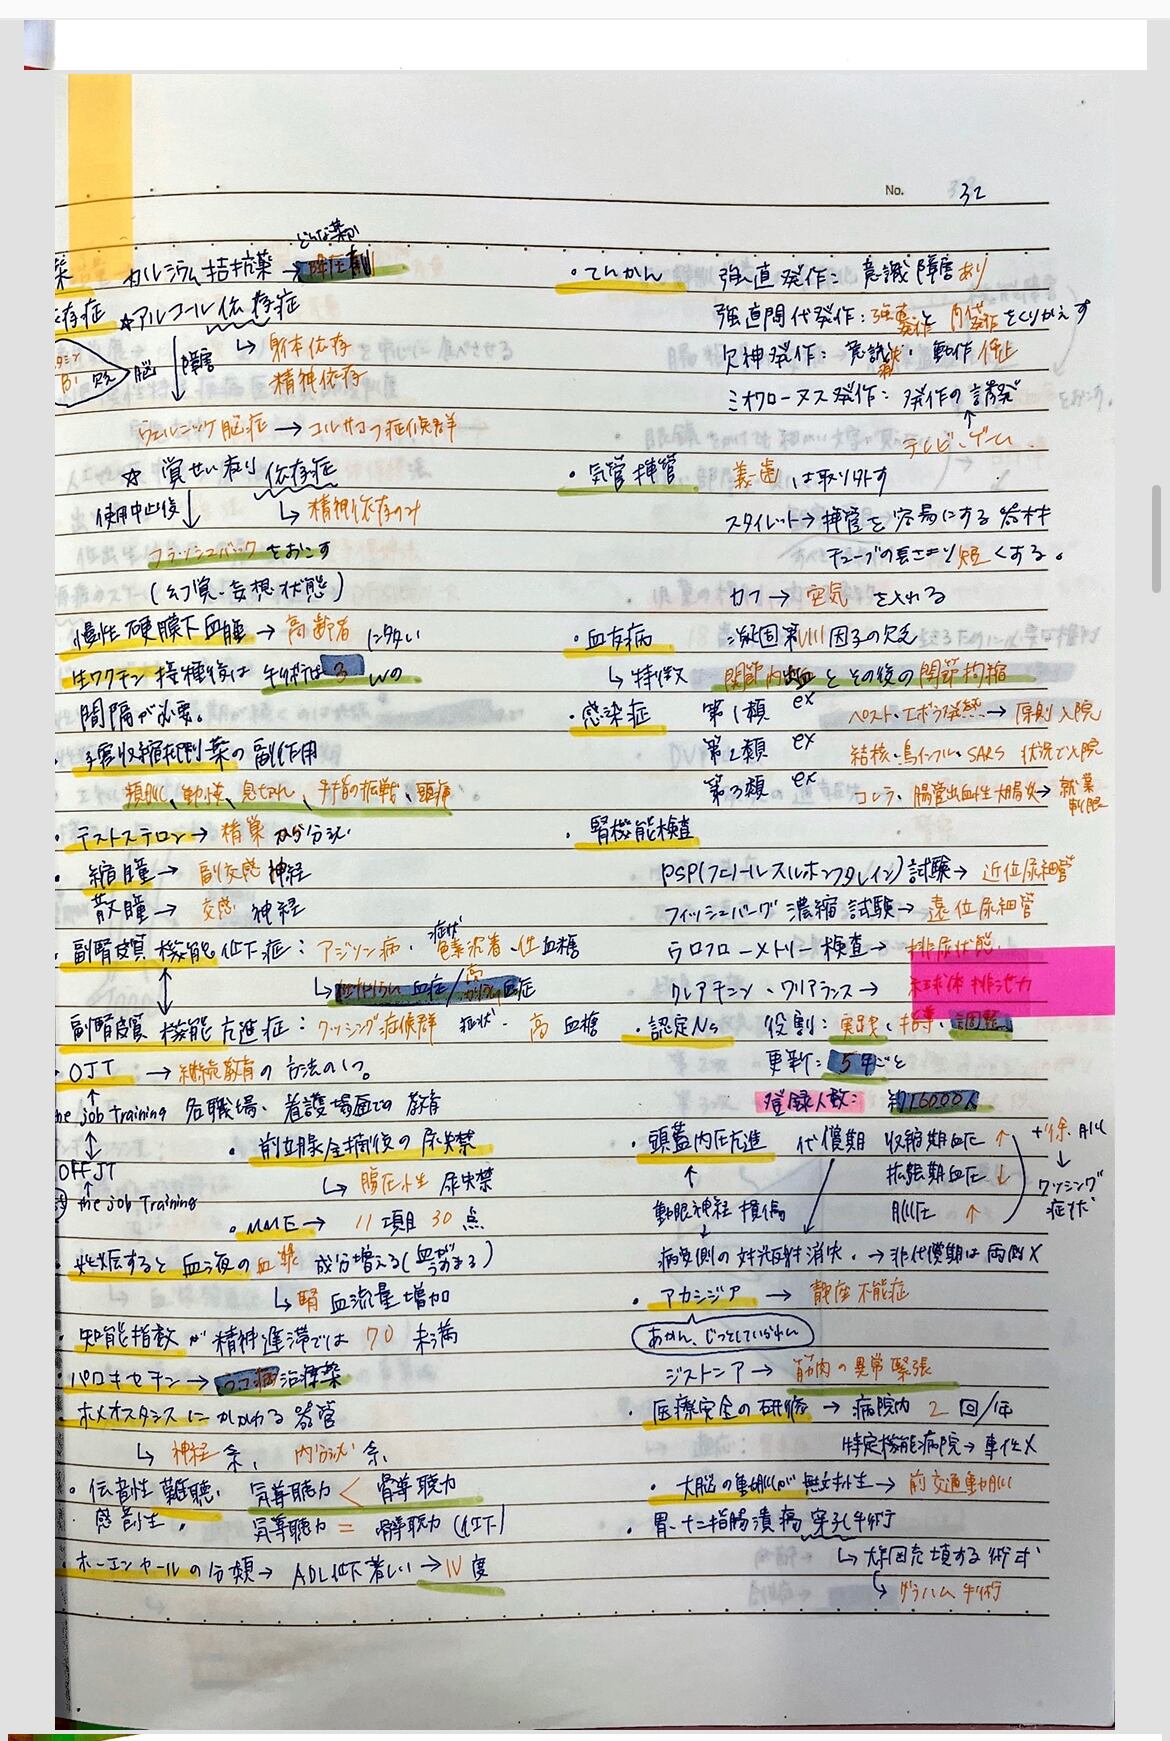 No. 32
どんな薬か
薬 カルシウム拮抗薬→降圧剤
存症 ☆アルコール依存症
↳身体依存
精神依存
B₁欠乏 脳 障害
ウェルニッケ脳症→コルサコフ症候群
☆覚せい剤依存症
使用中止後 ↳精神依存のみ
フラッシュバックをおこす
(幻覚・妄想状態)
慢性硬膜下血腫→高齢者に多い
生ワクチン接種後は手術は3Wの
間隔が必要。
子宮収縮抑制薬の副作用
頻脈、動悸、息切れ、手指の振戦、頭痛
・テストステロン→精巣から分泌
・縮瞳→副交感神経
散瞳→交感神経
副腎皮質機能低下症:アジソン病・症状 色素沈着・低血糖
↳低ナトリウム血症/高カリウム血症
副腎皮質機能亢進症:クッシング症候群 症状・高血糖
・OJT →継続教育の方法の1つ。
the job training 各職場、看護場面での教育
OFFJT
the job Training
・前立腺全摘後の尿失禁
↳腹圧性尿失禁
・MMSE→11項目30点
・妊娠すると血液の血漿成分増える(血がうすまる)
↳腎血流量増加
・知能指数が精神遅滞では70未満
・パロキセチン→うつ病治療薬
・ホメオスタシスにかかわる器官
↳神経系、内分泌系
・伝音性難聴、気導聴力<骨導聴力
・感音性。気導聴力=骨導聴力(低下)
・ホーエンヤールの分類→ADL低下著しい→Ⅳ度
・てんかん 強直発作:意識障害あり
強直間代発作:強直発作と間代発作をくりかえす
欠神発作:意識消失・動作停止
ミオクローヌス発作:発作の誘発
↑
テレビ・ゲーム
・気管挿管 義歯は取り外す
スタイレット→挿管を容易にする器材
チューブの長さより短くする。
カフ→空気を入れる
・血友病 凝固第Ⅷ因子の欠乏
↳特徴 関節内出血とその後の関節拘縮
・感染症 第1類 ex ペスト・エボラ出血熱→原則入院
第2類 ex 結核・鳥インフル・SARS 状況で入院
第3類 ex コレラ、腸管出血性大腸炎→就業制限
・腎機能検査
PSP(フェノールスルホンフタレイン)試験→近位尿細管
フィッシュバーグ濃縮試験→遠位尿細管
ウロフローメトリー検査→排尿状態
クレアチニン・クリアランス→糸球体排泄力
・認定Ns 役割:実践、指導、調整
更新:5年ごと
登録人数:約16000人
・頭蓋内圧亢進 代償期 収縮期血圧↑ +徐脈
拡張期血圧↓
脈圧↑ クッシング症状
動眼神経損傷
病変側の対光反射消失・→非代償期は両側×
・アカシジア→静座不能症
あかん、じっとしていられん
ジストニア→筋肉の異常緊張
・医療安全の研修→病院内2回/年
特定機能病院→専任×
・大脳の動脈が無対性→前交通動脈
・胃・十二指腸潰瘍穿孔手術
↳大網充填する術式
↳グラハム手術